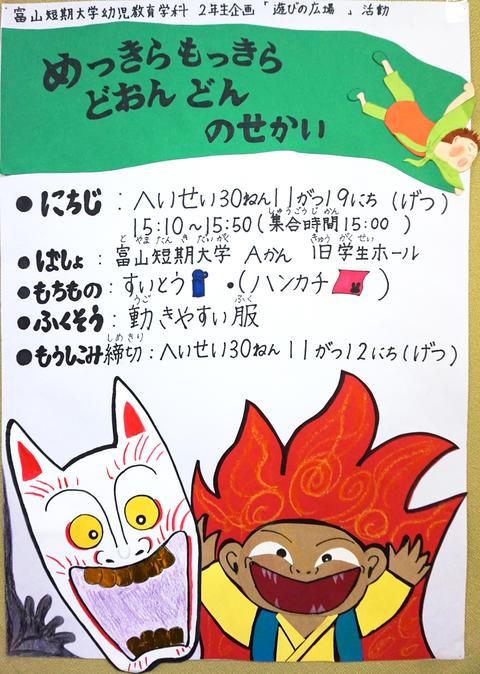 富山短期大学幼児教育学科 2年生企画「遊びの広場」活動
めっきらもっきら
どおんどん
のせかい
●にちじ：へいせい30ねん11がつ19にち(げつ)
しゅうごうじかん
15:10～15:50(集合時間15:00)
とやまたんきだいがく きゅうがくせい
●ばしょ：富山短期大学 Aかん 旧学生ホール
●もちもの：すいとう ・(ハンカチ )
うご ふく
●ふくそう：動きやすい服
しめきり
●もうしこみ締切：へいせい30ねん11がつ12にち(げつ)